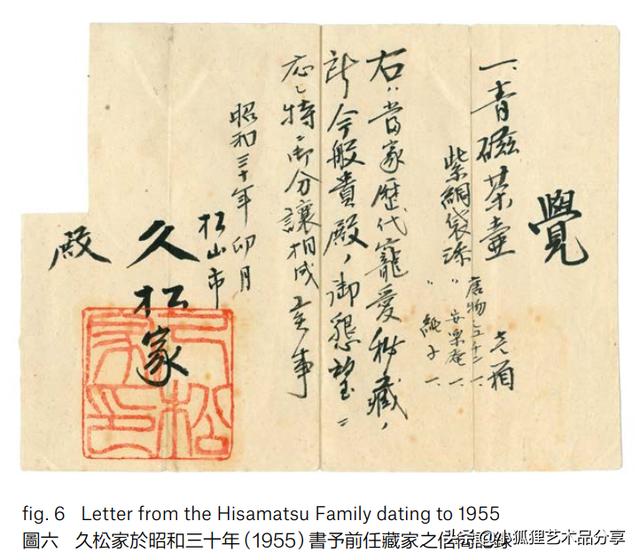 覺
一、青磁茶壺
紫綢袋添
安楽庵 一、
純子 一、
右ハ當家歴代寵愛秘藏ノ
今般貴殿ノ御懇望ニ
特ニ御分讓相成
事
昭和三十年 卯月
松山市
久松家
殿
久松家印
fig. 6 Letter from the Hisamatsu Family dating to 1955
圖六 久松家於昭和三十年(1955)書予前任藏家之
头条@小狐狸艺术品分享